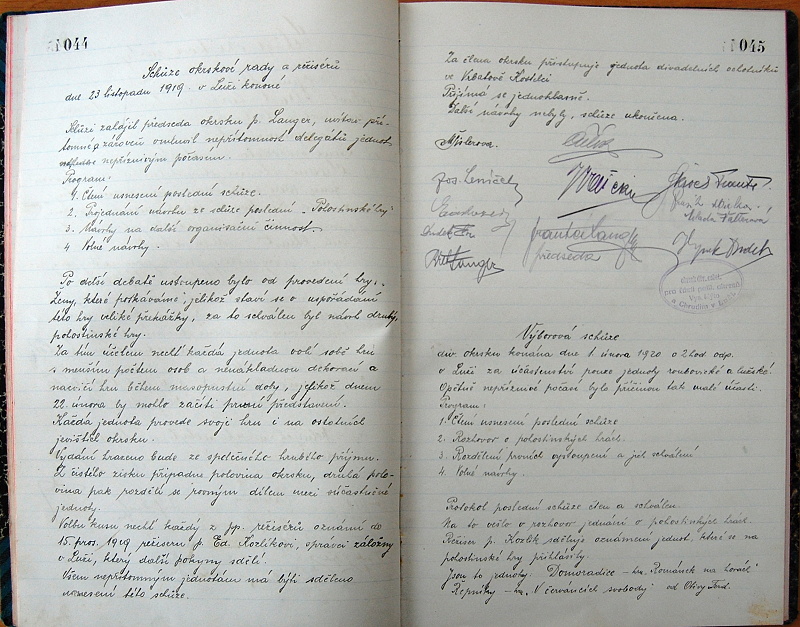 044
Schůze okrskové rady a režisérů
dne 23 listopadu 1919 v Luži konané
Schůzi zahájil předseda okrsku p. Langer, uvítav pří-
tomné a zároveň omluvil nepřítomnost delegátů jednot
následkem nepříznivým počasím.
Program:
1. Čtení usnesení poslední schůze.
2. Projednání návrhu ze schůze poslední „Pohostinské hry"
3. Návrhy na další organisační činnost.
4. Volné návrhy.
Po delší debatě ustoupeno bylo od provedení hry:
„Ženy, které postrádáme", jelikož staví se v uspořádání
této hry veliké překážky, za to schválen byl návrh druhý,
pohostinské hry.
Za tím účelem nechť každá jednota volí sobě hru
s menším počtem osob a nenákladnou dekorací a
nacvičí hru během masopustní doby, jelikož dnem
22. února by mohlo začíti první představení.
Každá jednota provede svoji hru i na ostatních
jevištích okrsku.
Vydání hrazeno bude ze společného hrubého příjmu.
Z čistého zisku připadne polovina okrsku, druhá polo-
vina pak rozdělí se rovným dílem mezi súčastněné
jednoty.
Volbu kusu nechť každý z pp. režisérů oznámí do
15. pros. 1919, režiseru p. Ed. Kozlíkovi, správci záložny
v Luži, který další pokyny sdělí.
Všem nepřítomným jednotám má býti sděleno
usnesení této schůze.
045
Za člena okrsku přistupuje jednota divadelních ochotníků
ve Vrbatově Kostelci
Přijímá se jednohlasně.
Další návrhy nebyly, schůze ukončena.
Jos. Lemíček
František Langer
předseda
Hynek Drdek
Výborová schůze
div. okrsku konána dne 1 února 1920 o 2 hod odp.
v Luži za účastenství pouze jednoty roubovické a lužské.
Opětně nepříznivé počasí bylo příčinou tak malé účasti.
Program:
1. Čtení usnesení poslední schůze
2. Rozhovor o pohostinských hrách.
3. Rozdělení prvních vystoupení a jich schválení
4. Volné návrhy.
Protokol poslední schůze čten a schválen.
Na to vešlo v rozhovor jednání o pohostinských hrách.
Režiser p. Kozlík sděluje oznámení jednot, které se na
pohostinské hry přihlásily.
Jsou to jednoty: Domoradice – hra „Románek na horách"
Řepníky – hra „V červáncích svobody" od Olivy Ferd.